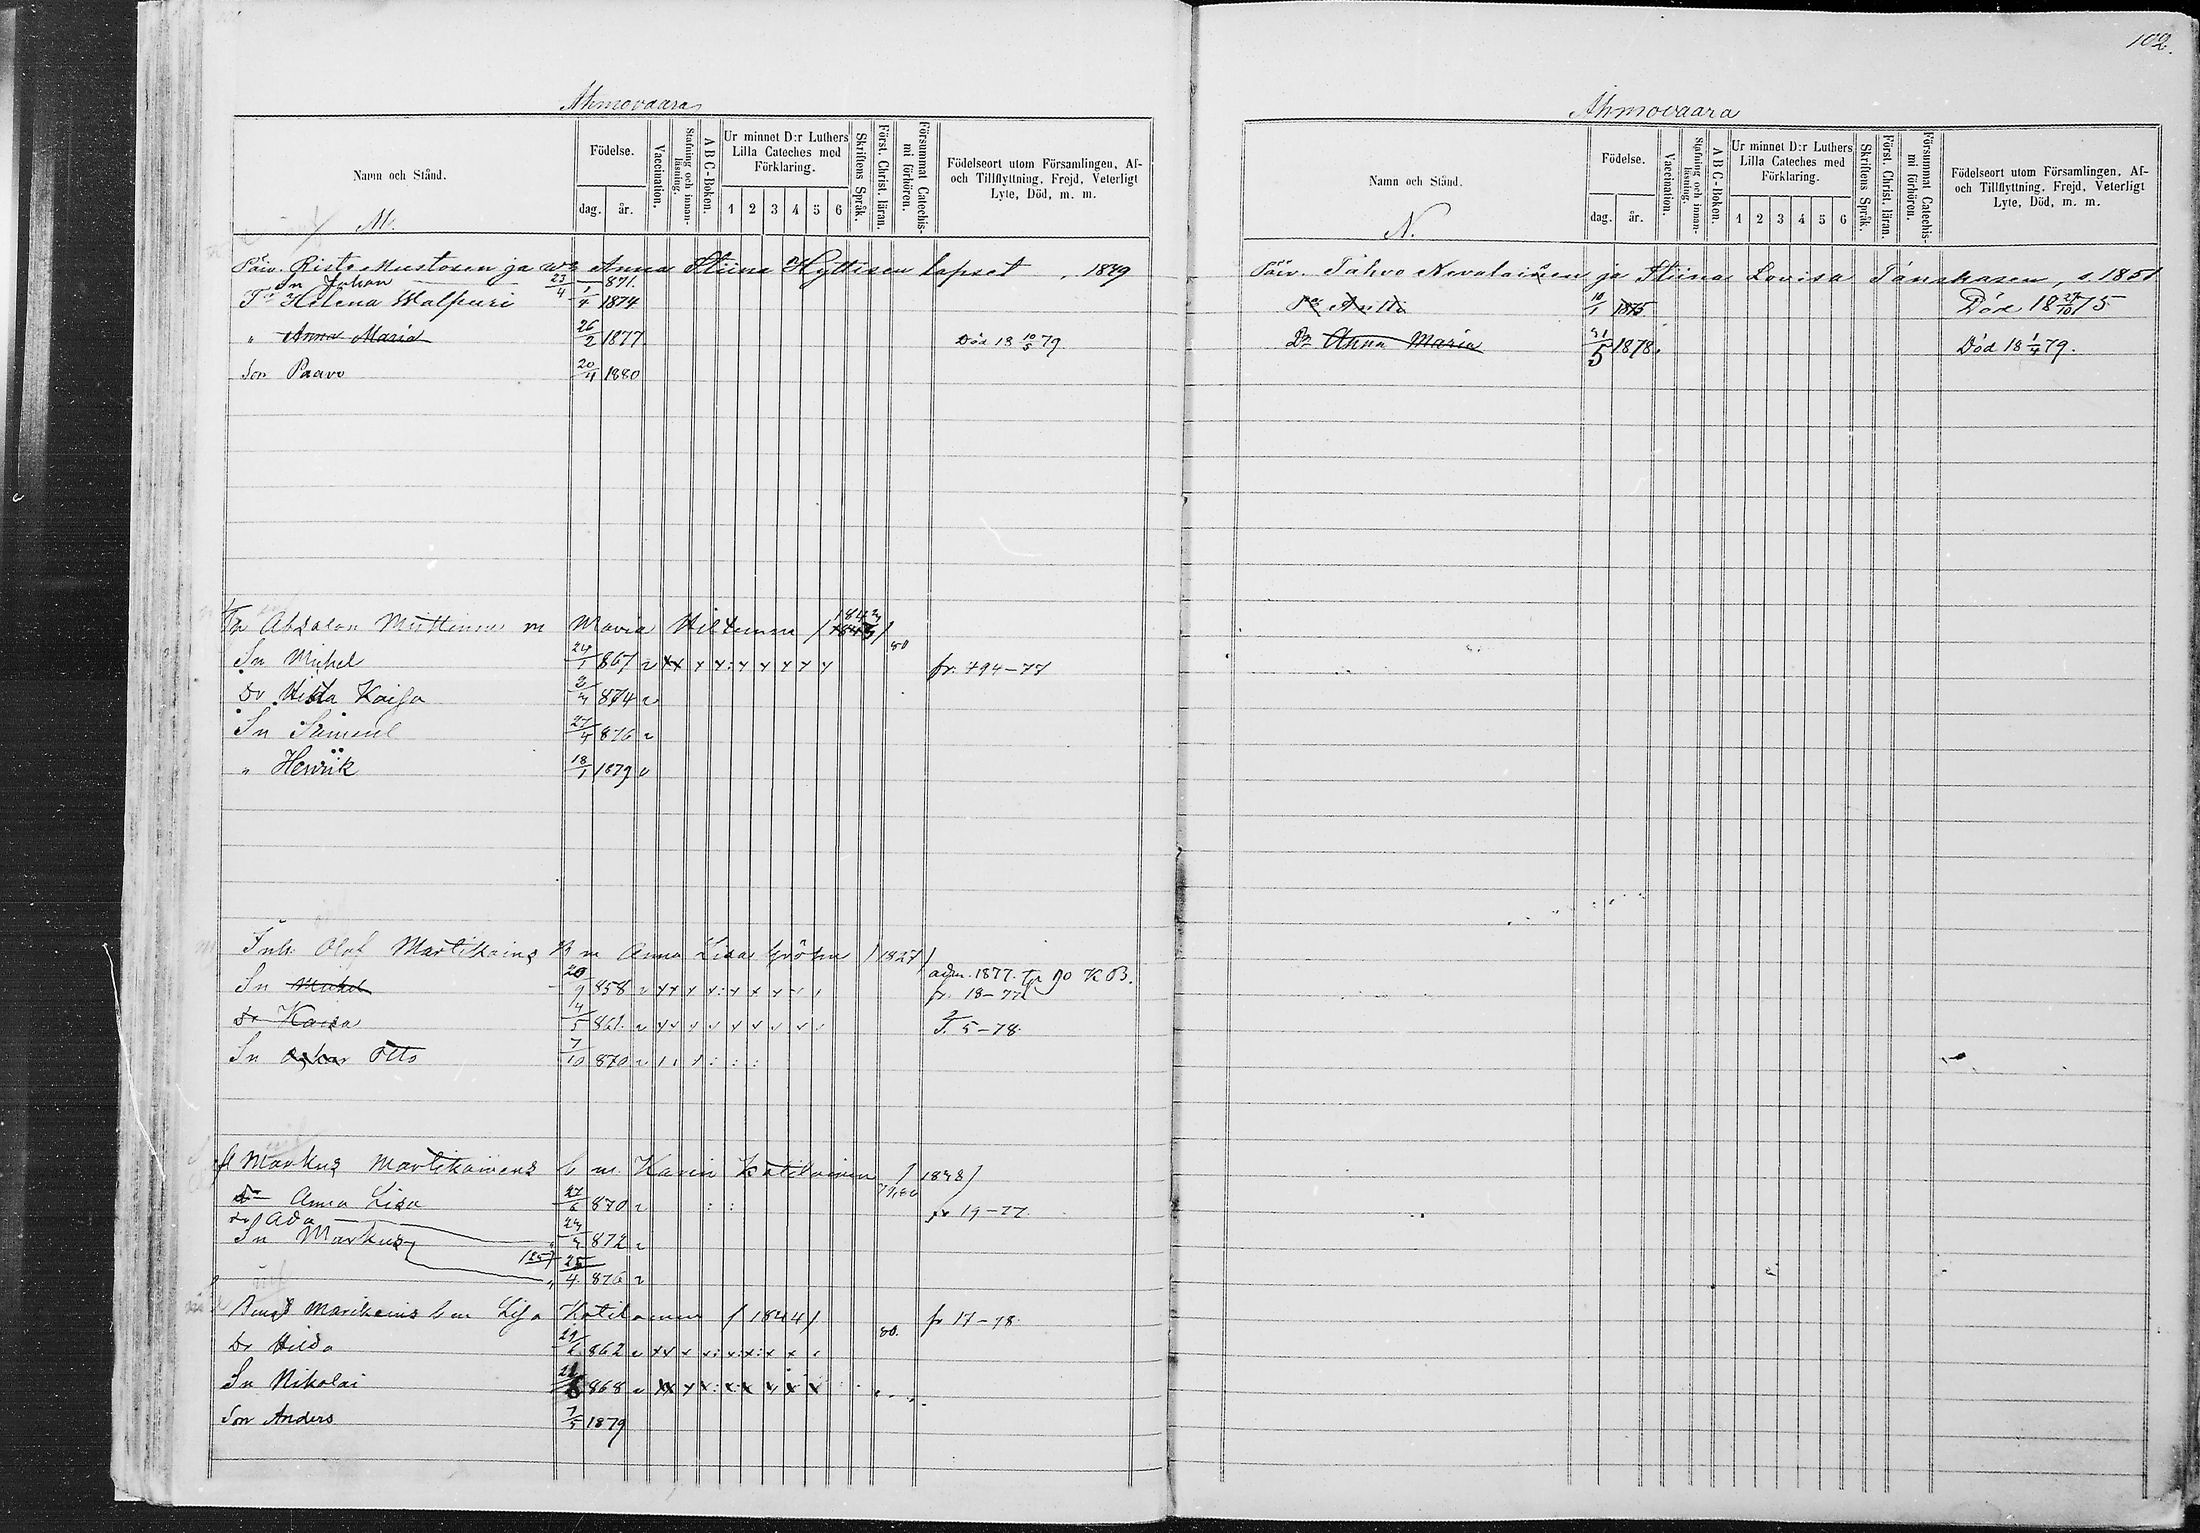 102.
Ahmovaara
Namn och Stånd.
M.
Födelse.
dag. år.
Vaccination.
Stafning och innan-läsning.
A B C-Boken.
Ur minnet D:r Luthers Lilla Cateches med Förklaring.
1 2 3 4 5 6
Skriftens Språk.
Först. Christ. läran.
Försummat Catechis-mi förhören.
Födelseort utom Församlingen, Af- och Tillflyttning, Frejd, Veterligt Lyte, Död, m. m.
Risto Mustosen ja Anna Stiina Hyttisen lapset, 1849
Sn Johan 23/4 871.
Helena Walpuri 1/4 1874
" Anna Maria 26/2 1877 Död 18 10/5 79
Son Paavo 20/4 1880
Absalon Miettinen m Maria Hiltunen
Sn Michel 24/1 867 fr. 494-77
Dr Hilda Kaisa 874
Sn Samuel 27/4 876
" Henrik 18/1 1879
Inh. Olof Martikains m Anna Lisa Gröhn /1827/
Sn Michel 20/9 858 fr. 18-77
adm. 1877.
Dr Kaisa 4/5 861. 5-78
Sn Oskar Otto 7/10 870
Markus Martikainens m Karin Katilainen
Dr Anna Lisa 27/6 870 fr 19-77
Dr Ada 872
Sn Markus 25/4 876
Lisa Katilainen /1844/ fr 17-78.
Dr Hilda 29/6 862 80.
Sn Nikolai 868
Son Anders 7/5 1879
Ahmovaara
Namn och Stånd.
N.
Födelse.
dag. år.
Vaccination.
Stafning och innan-läsning.
A B C-Boken.
Ur minnet D:r Luthers Lilla Cateches med Förklaring.
1 2 3 4 5 6
Skriftens Språk.
Först. Christ. läran.
Försummat Catechis-mi förhören.
Födelseort utom Församlingen, Af- och Tillflyttning, Frejd, Veterligt Lyte, Död, m. m.
Tahvo Nevalaisen ja Stiina Lovisa Tanskasen, s. 1851
Antti 10/1 1875 Död 18 27/10 75
Anna Maria 31/5 1878. Död 18 1/4 79.